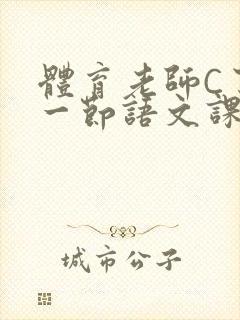 體育老師C
一節語文課
城市公子